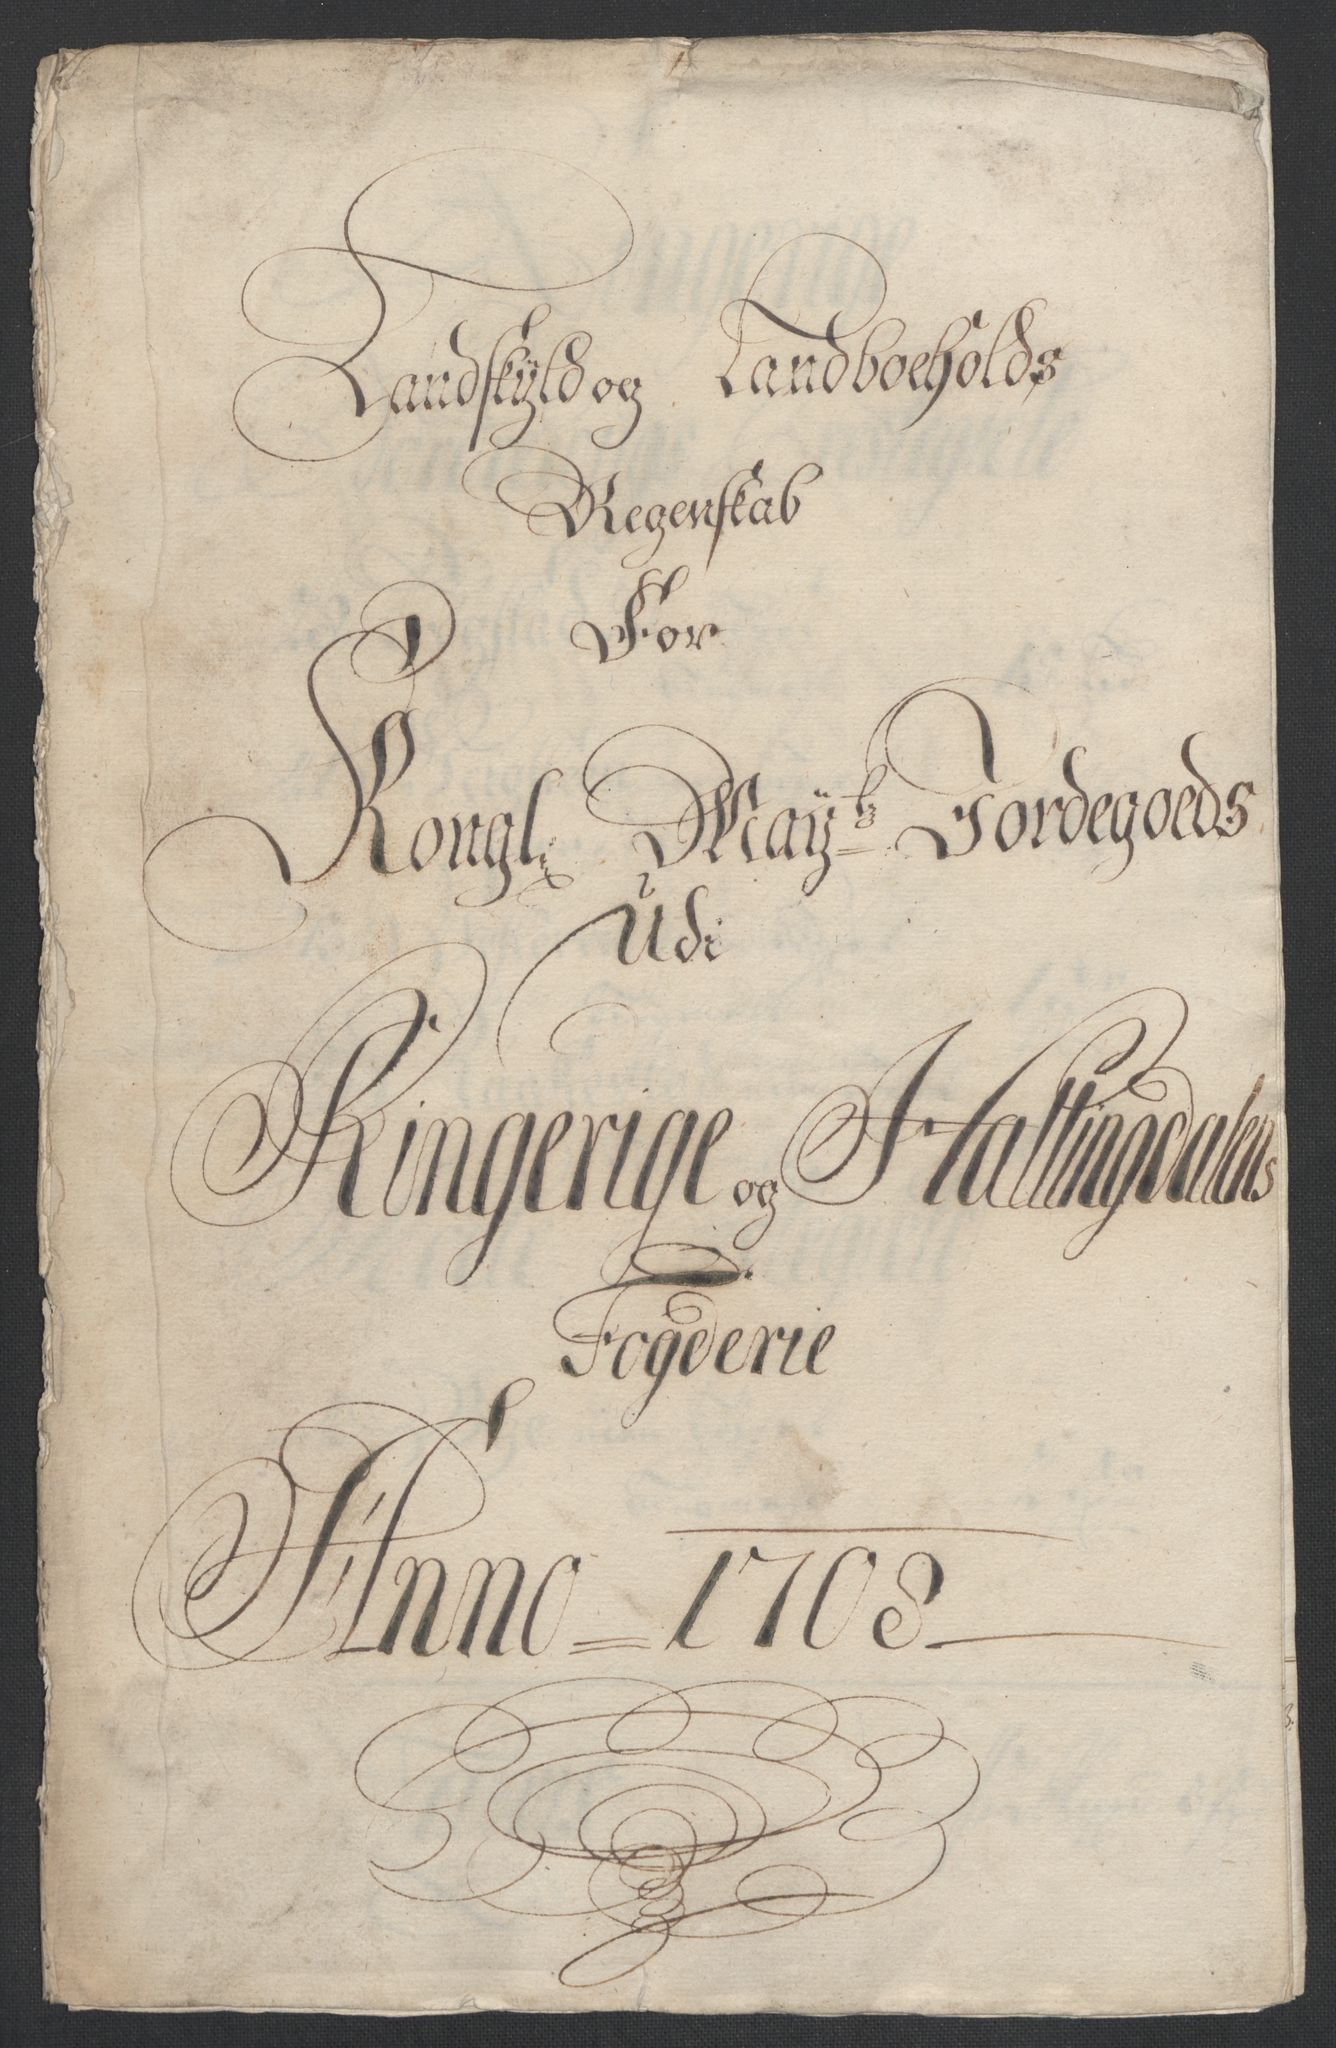 Landskÿld og Landboeholds
Regenskab
For
Kongl: Maÿtz Jordegoeds
Udi
Ringerige og Hallingdalens
Fogderie
Anno = 1708